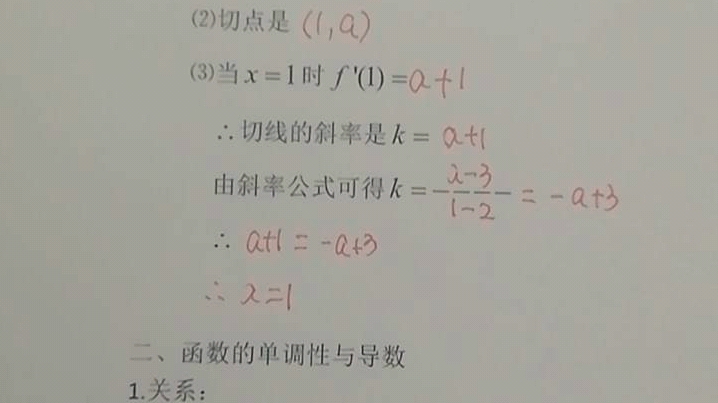 (2)切点是 (1,a)
(3)当x=1时f'(1)=a+1
∴切线的斜率是k= a+1
由斜率公式可得k= a-3/1-2 = -a+3
∴ a+1 = -a+3
∴ a=1
二、函数的单调性与导数
1.关系：